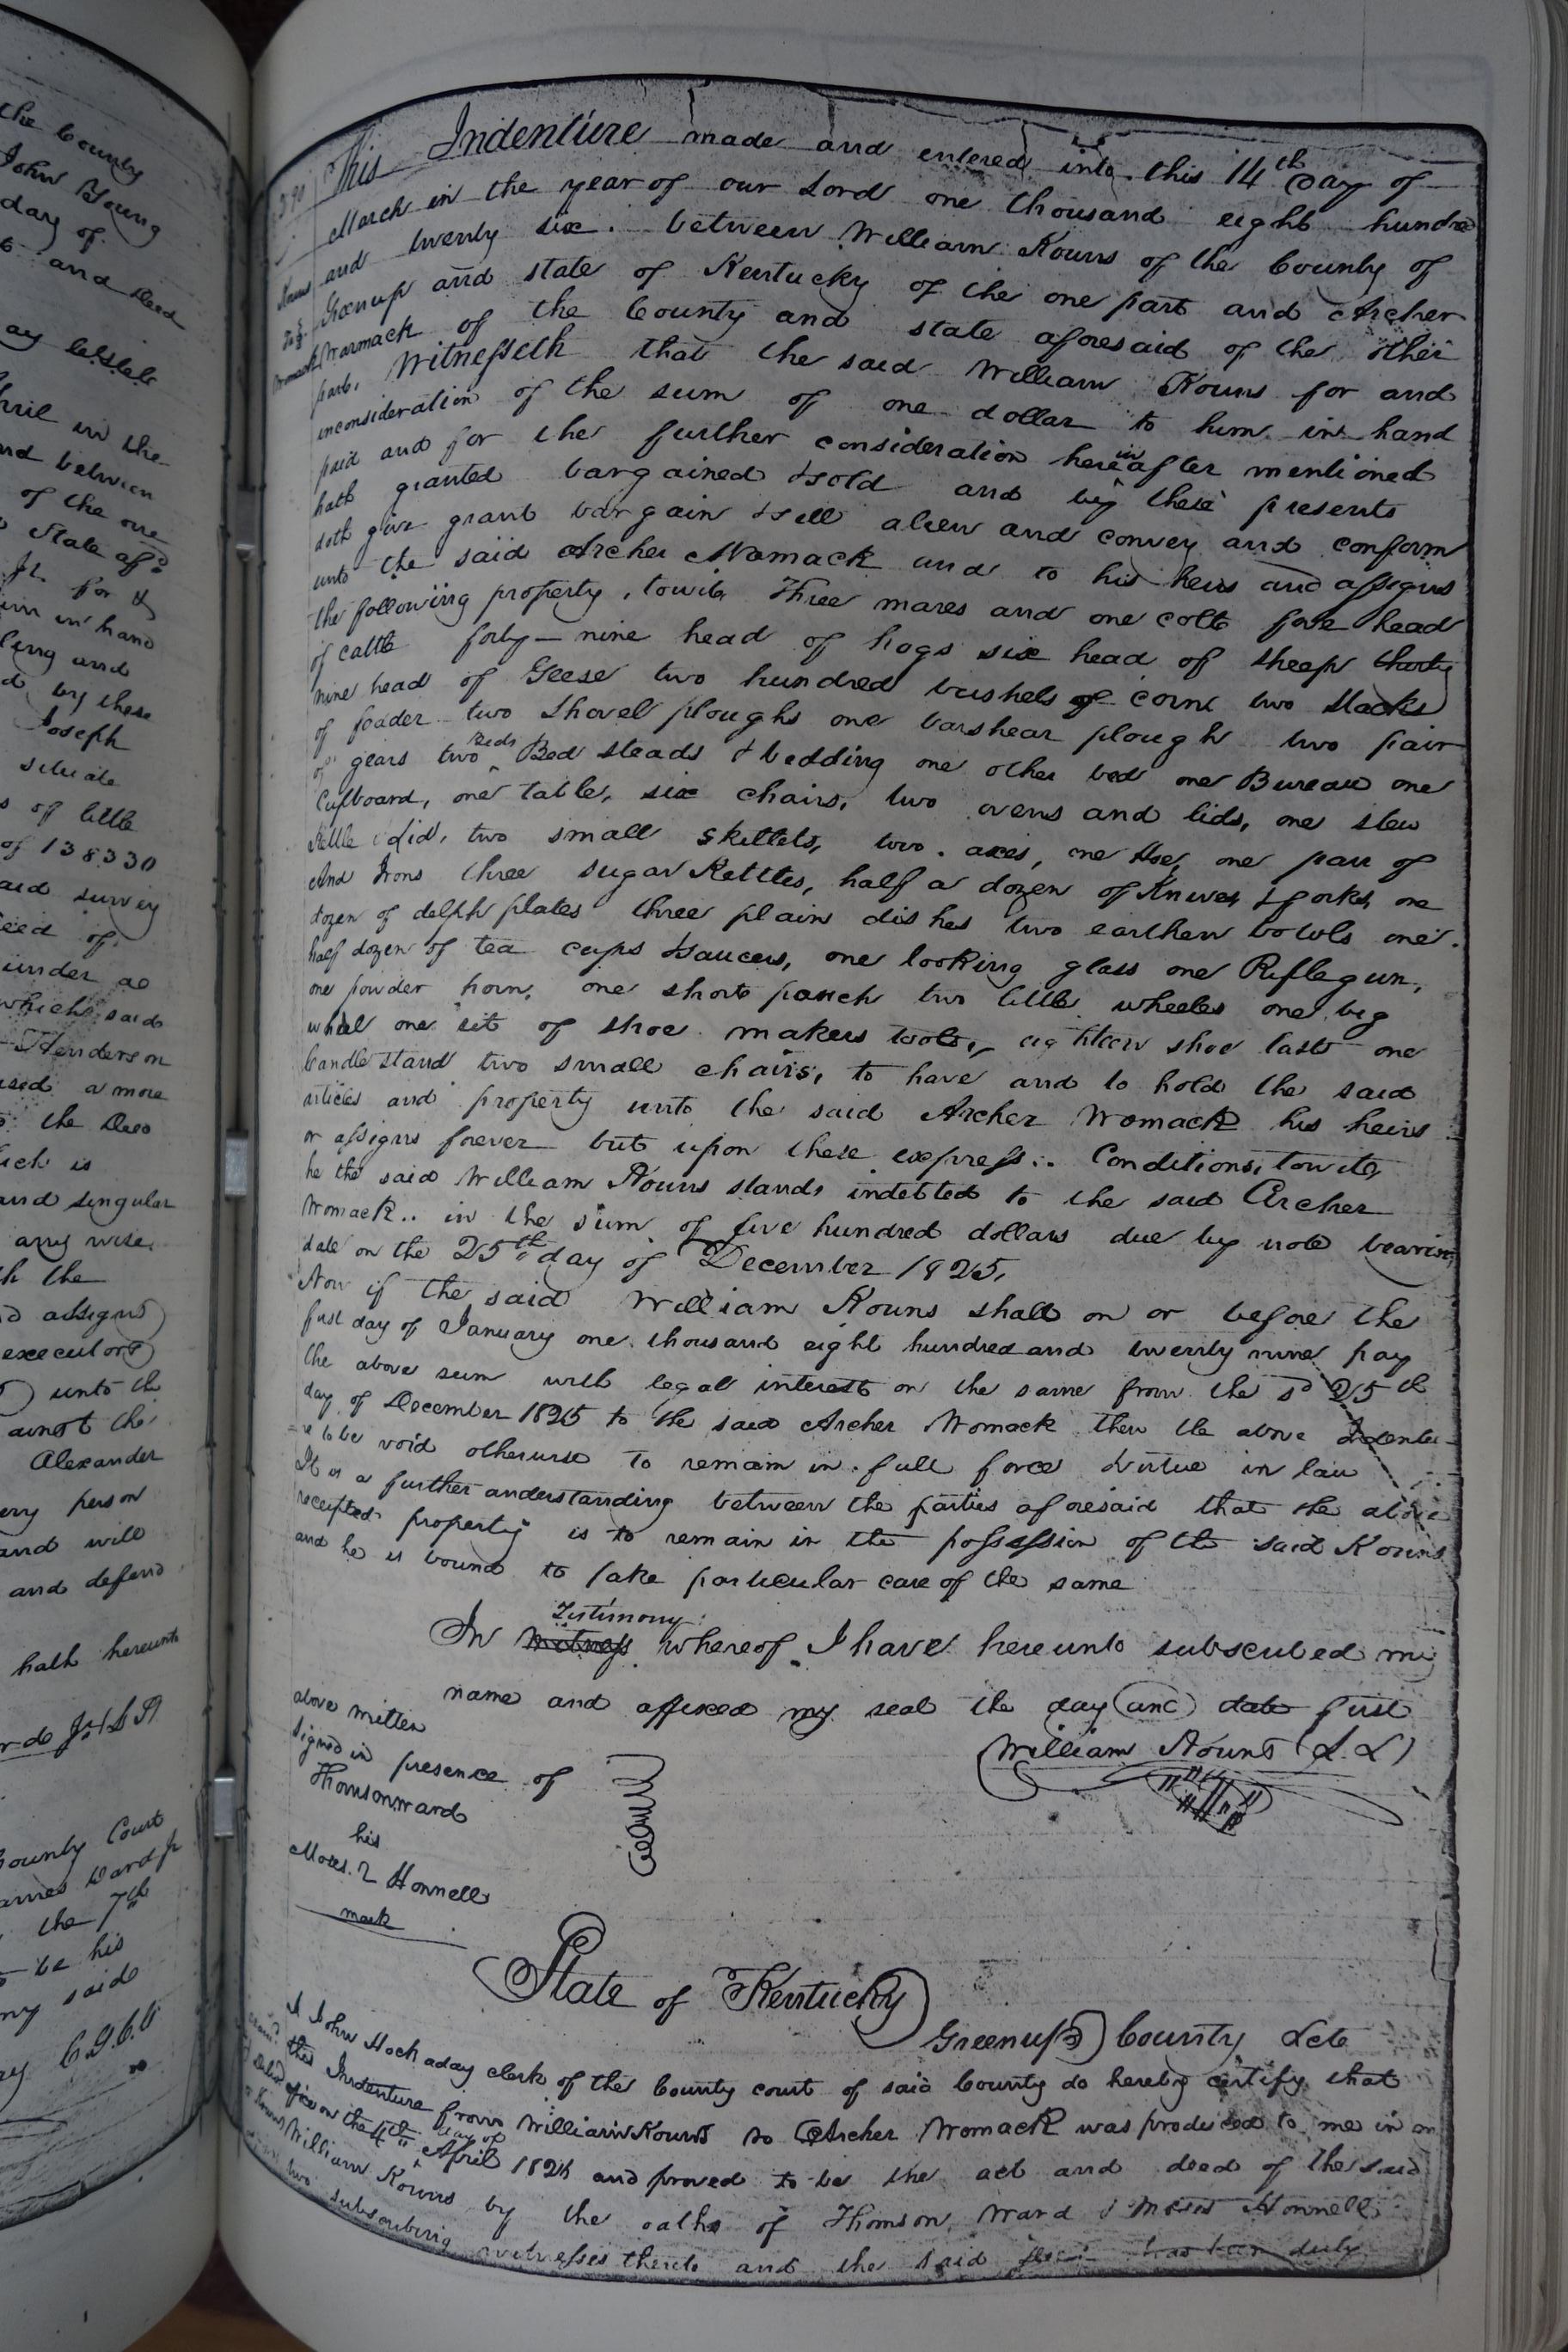 the County
John Young
day of
and Deed
April in the
and between
of the one
State afsd
Jr. for &
him in hand
and
by these
Joseph
situate
of little
of 138330
said survey
deed of
under
which said
Henderson
a more
the Deed
which is
and singular
any wise
the
assigns
executors
unto the
against the
Alexander
every person
and will
and defend
hath hereunto
County Court
James Ward Jr
the 7th
to be his
my said
This Indenture made and entered into this 14th Day of
March in the year of our Lord one thousand eight hundred
and twenty six. between William Kouns of the County of
Greenup and state of Kentucky of the one part and Archer
Warmack of the County and state aforesaid of the other
part, Witnesseth that the said William Kouns for and
inconsideration of the sum of one dollar to him in hand
paid and for the further consideration hereinafter mentioned
hath granted bargained & sold and by these presents
doth give grant bargain & sell alien and convey and conform
unto the said Archer Womack and to his heirs and assigns
the following property, towit, Three mares and one colt five head
of cattle forty-nine head of hogs six head of sheep thirty
nine head of Geese two hundred bushels of corn two stacks
of foader two shovel ploughs one barshear plough two pair
of gears two Beds Bed steads & bedding one other bed one Bureau one
Cupboard, one table, six chairs, two ovens and lids, one stew
Kettle & lid, two small skillets, two axes, one Hoe, one pair of
And Irons three sugar Kettles, half a dozen of Knives & forks, one
dozen of delph plates three plain dishes two earthen bowls one
half dozen of tea cups & saucers, one looking glass one Riflegun,
one powder horn, one shot pouch two little wheeles one big
wheel one sit of shoe makers tools, eighteen shoe lasts one
Candlestand two small chairs, to have and to hold the said
articles and property unto the said Archer Womack his heirs
or assigns forever but upon these express Conditions, towit,
he the said William Kouns stands indebted to the said Archer
Womack in the sum of five hundred dollars due by note bearing
date on the 25th day of December 1825,
Now if the said William Kouns shall on or before the
first day of January one thousand eight hundred and twenty nine pay
the above sum with legal interest on the same from the sd 25th
day of December 1825 to the said Archer Womack then the above Indentu-
=re to be void otherwise to remain in full force & virtue in law
It is a further understanding between the parties aforesaid that the above
recepted property is to remain in the possession of the said Kouns
and he is bound to take particular care of the same
In witness Testimony whereof I have hereunto subscribed my
name and affixed my seal the day and date first
above written
William Kouns (L.S)
Signed in presence of
Thomson ward
his
Moses Honnell
mark
State of Kentucky
Greenup County Sct
I John Hockaday clerk of the County court of said County do hereby certify that
this Indenture from William Kouns to Archer Womack was produced to me in my
office on the 4th day of April 1826 and proved to be the act and deed of the said
William Kouns by the oaths of Thomson Ward & Moses Honnell
two subscribing witnesses thereto and the said has been duly